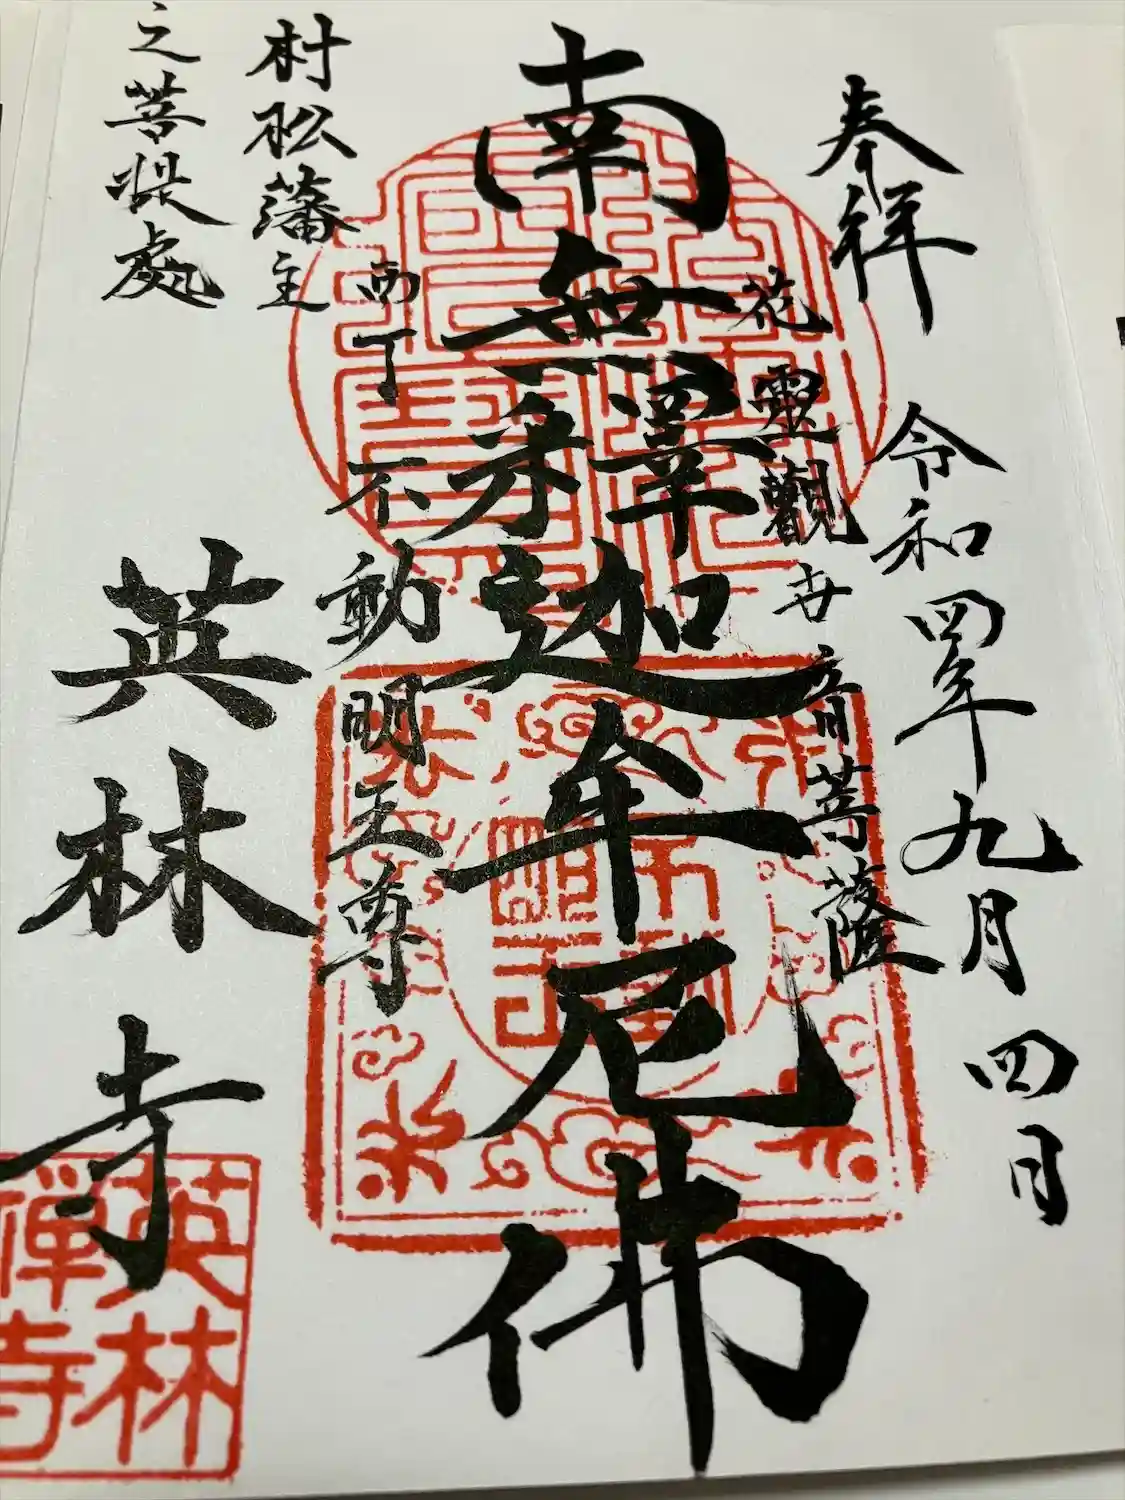 奉拝
令和四年九月四日
花靈觀世音菩薩
南無釋迦牟尼佛
西丁不動明王尊
村松藩主
之菩提處
英林寺
英林
禅寺